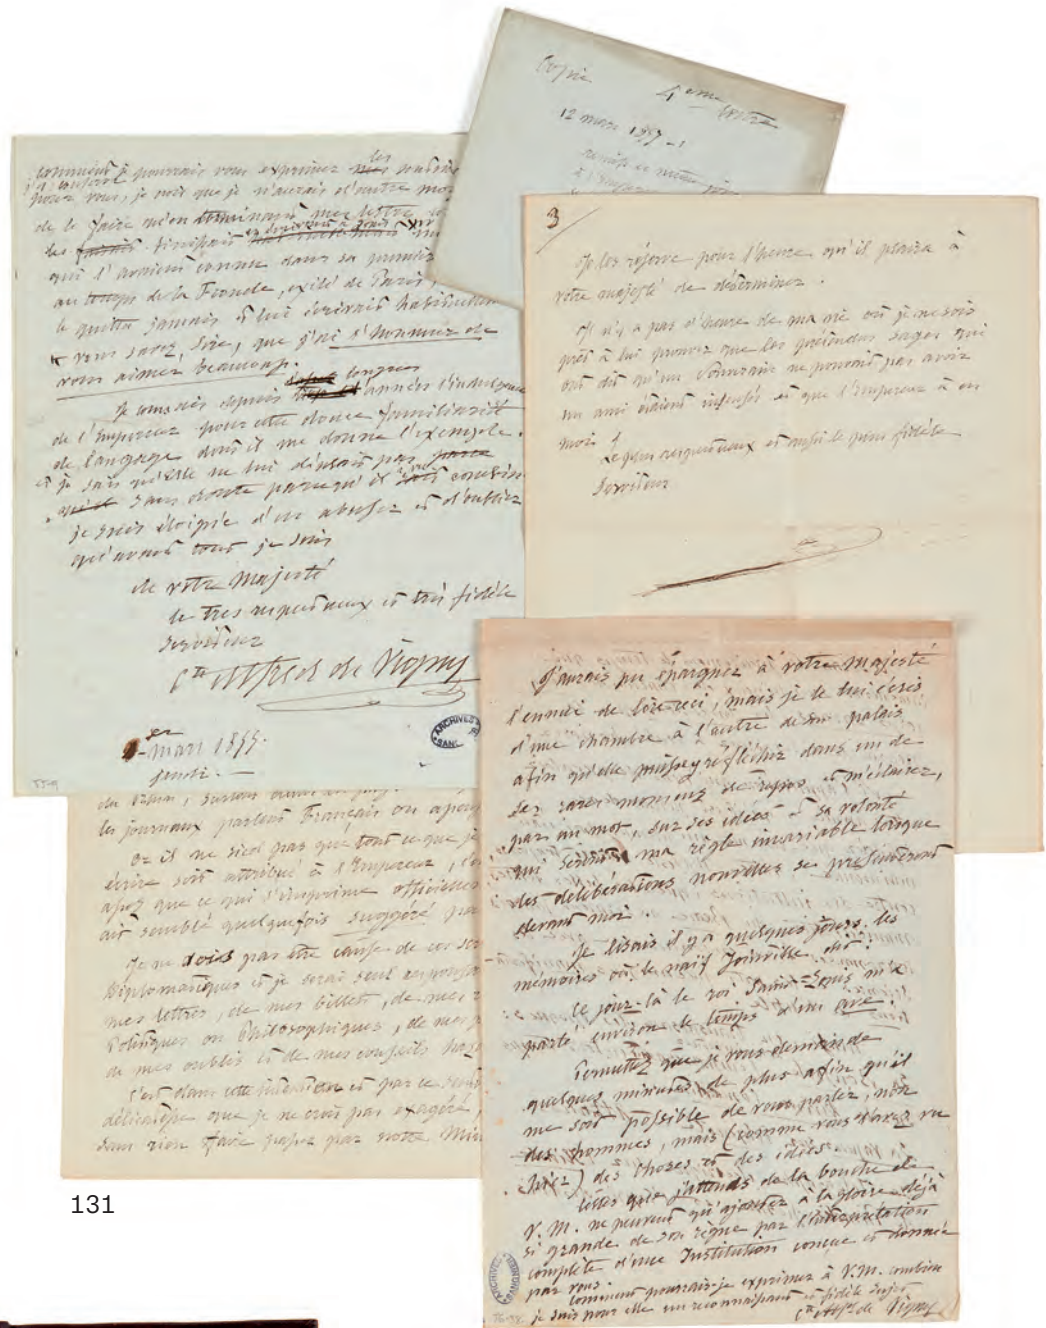 Copie
4eme lettre
12 mars 1857
comment je pourrais vous exprimer les
vous, je crois que je n'aurais d'autre
de le faire qu'en terminant mes lettres
les finissait
qui l'avaient connu dans sa première
au temps de la Fronde, exilé de Paris,
le quitta jamais et lui écrivait
vous savez, Sire, que j'ai l'honneur de
vous aimer beaucoup.
Je connais depuis longues années l'indulgence
de l'Empereur pour cette douce familiarité
de langage dont il me donne l'exemple.
et je sais qu'Elle ne lui déplait pas
sans doute parce qu'il sait combien
je suis éloigné d'en abuser et d'oublier
qu'avant tout je suis
de votre Majesté
le très respectueux et très fidèle
serviteur
Cte Alfred de Vigny
1er mars 1855.
jeudi. —
3
Je les réserve pour l'heure qu'il plaira à
votre majesté de déterminer.
Il n'y a pas d'heure de ma vie où je ne sois
prêt à lui prouver que les prétendus sages qui
ont dit qu'un Souverain ne pouvait pas avoir
un ami étaient insensés et que l'Empereur a en
moi
Le plus respectueux et aussi le plus fidèle
Serviteur
les journaux parlent Français ou
Or il ne sied pas que tout ce que je
écrire soit attribué à l'Empereur,
que ce qui s'imprime
ait semblé quelquefois suggéré par
Je ne dois pas être cause de ces
Diplomatiques et je serai seul
mes lettres, de mes billets, de mes
Politiques ou Philosophiques, de mes
de mes oublis et de mes conseils
C'est dans cette intention et par ce
délicatesse que je ne crois pas exagéré,
sans rien faire passer par notre
J'aurais pu épargner à votre Majesté
l'ennui de lire ceci, mais je le lui écris
d'une chambre à l'autre de son palais
afin qu'elle puisse y réfléchir dans un de
ses rares moments de repos et m'éclairer,
par un mot, sur ses idées et sa volonté
qui sera ma règle invariable lorsque
des délibérations nouvelles se présenteront
devant moi.
Je lisais il y a quelques jours les
mémoires où le naïf Joinville dit:
Ce jour-là le roi Saint-Louis m'a
parlé environ le temps d'un ave.
Permettez que je vous demande
quelques minutes de plus afin qu'il
me soit possible de vous parler, non
des hommes, mais (comme vous
hier) des choses et des idées.
Celles que j'attends de la bouche de
V. M. ne peuvent qu'ajouter à la gloire déjà
si grande de son règne par l'interprétation
complète d'une Institution conçue et donnée
par vous.
Comment pourrais-je exprimer à V.M. combien
je suis pour elle un reconnaissant et fidèle sujet
Cte Alfd de Vigny
131